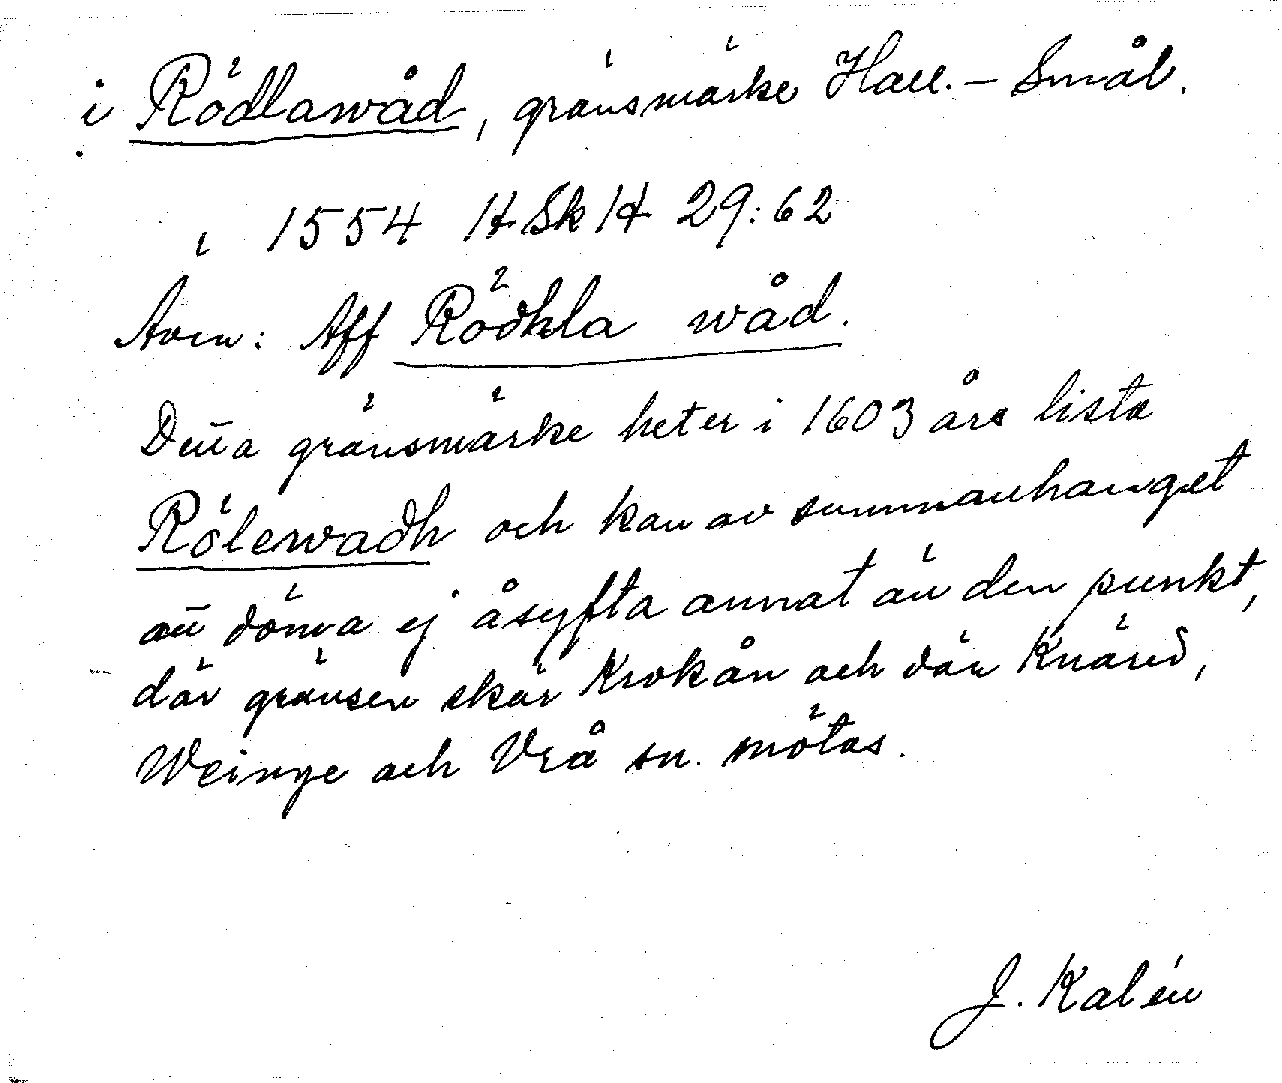 i Rödlawåd, gränsmärke Hall. – Smål.
1554 HSkH 29:62
Även: Aff Rödhla wåd.
Detta gränsmärke heter i 1603 års lista
Rölewadh och kan av sammanhanget
att döma ej åsyfta annat än den punkt,
där gränsen skär Krokån och där Knäred,
Weinge och Vrå sn. mötas.
J. Kalén